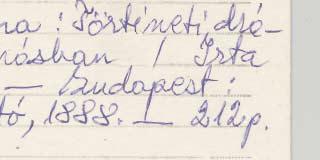 na : Történeti drá-
násban / Irta
— Budapest :
tó, 1888. — 212p.